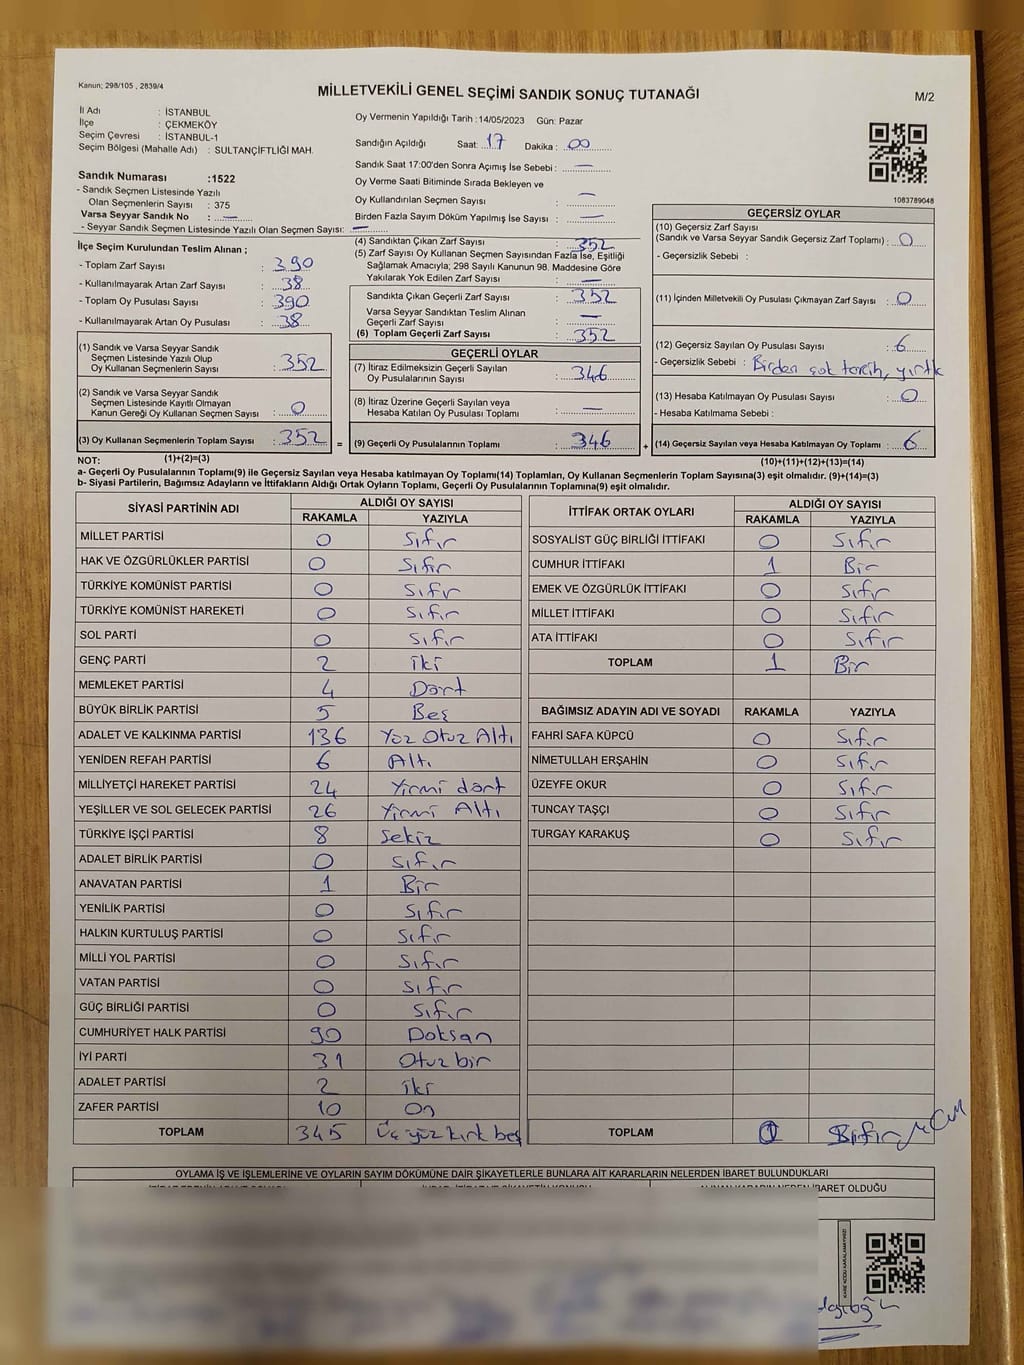 Kanun; 298/105 , 2839/4
MİLLETVEKİLİ GENEL SEÇİMİ SANDIK SONUÇ TUTANAĞI
M/2
İl Adı : İSTANBUL
İlçe : ÇEKMEKÖY
Seçim Çevresi : İSTANBUL-1
Seçim Bölgesi (Mahalle Adı) : SULTANÇİFTLİĞİ MAH.
Oy Vermenin Yapıldığı Tarih :14/05/2023 Gün: Pazar
Sandığın Açıldığı Saat: 17 Dakika : 00
Sandık Saat 17:00'den Sonra Açımış İse Sebebi : —
Oy Verme Saati Bitiminde Sırada Bekleyen ve
Oy Kullandırılan Seçmen Sayısı : —
Birden Fazla Sayım Döküm Yapılmış İse Sayısı : —
1083789048
Sandık Numarası :1522
- Sandık Seçmen Listesinde Yazılı
Olan Seçmenlerin Sayısı : 375
Varsa Seyyar Sandık No : —
- Seyyar Sandık Seçmen Listesinde Yazılı Olan Seçmen Sayısı: —
İlçe Seçim Kurulundan Teslim Alınan ;
- Toplam Zarf Sayısı : 390
- Kullanılmayarak Artan Zarf Sayısı : 38
- Toplam Oy Pusulası Sayısı : 390
- Kullanılmayarak Artan Oy Pusulası : 38
(1) Sandık ve Varsa Seyyar Sandık
Seçmen Listesinde Yazılı Olup
Oy Kullanan Seçmenlerin Sayısı : 352
(2) Sandık ve Varsa Seyyar Sandık
Seçmen Listesinde Kayıtlı Olmayan
Kanun Gereği Oy Kullanan Seçmen Sayısı : 0
(3) Oy Kullanan Seçmenlerin Toplam Sayısı : 352 =
(1)+(2)=(3)
(4) Sandıktan Çıkan Zarf Sayısı : 352
(5) Zarf Sayısı Oy Kullanan Seçmen Sayısından Fazla İse, Eşitliği
Sağlamak Amacıyla; 298 Sayılı Kanunun 98. Maddesine Göre
Yakılarak Yok Edilen Zarf Sayısı : —
Sandıkta Çıkan Geçerli Zarf Sayısı : 352
Varsa Seyyar Sandıktan Teslim Alınan
Geçerli Zarf Sayısı : —
(6) Toplam Geçerli Zarf Sayısı : 352
GEÇERLİ OYLAR
(7) İtiraz Edilmeksizin Geçerli Sayılan
Oy Pusulalarının Sayısı : 346
(8) İtiraz Üzerine Geçerli Sayılan veya
Hesaba Katılan Oy Pusulası Toplamı : —
(9) Geçerli Oy Pusulalarının Toplamı : 346 +
GEÇERSİZ OYLAR
(10) Geçersiz Zarf Sayısı
(Sandık ve Varsa Seyyar Sandık Geçersiz Zarf Toplamı) : 0
- Geçersizlik Sebebi :
(11) İçinden Milletvekili Oy Pusulası Çıkmayan Zarf Sayısı : 0
(12) Geçersiz Sayılan Oy Pusulası Sayısı : 6
- Geçersizlik Sebebi : Birden çok tercih, yırtık
(13) Hesaba Katılmayan Oy Pusulası Sayısı : 0
- Hesaba Katılmama Sebebi :
(14) Geçersiz Sayılan veya Hesaba Katılmayan Oy Toplamı : 6
(10)+(11)+(12)+(13)=(14)
NOT:
a- Geçerli Oy Pusulalarının Toplamı(9) ile Geçersiz Sayılan veya Hesaba katılmayan Oy Toplamı(14) Toplamları, Oy Kullanan Seçmenlerin Toplam Sayısına(3) eşit olmalıdır. (9)+(14)=(3)
b- Siyasi Partilerin, Bağımsız Adayların ve İttifakların Aldığı Ortak Oyların Toplamı, Geçerli Oy Pusulalarının Toplamına(9) eşit olmalıdır.
SİYASİ PARTİNİN ADI ALDIĞI OY SAYISI
RAKAMLA YAZIYLA
MİLLET PARTİSİ 0 Sıfır
HAK VE ÖZGÜRLÜKLER PARTİSİ 0 Sıfır
TÜRKİYE KOMÜNİST PARTİSİ 0 Sıfır
TÜRKİYE KOMÜNİST HAREKETİ 0 Sıfır
SOL PARTİ 0 Sıfır
GENÇ PARTİ 2 iki
MEMLEKET PARTİSİ 4 Dört
BÜYÜK BİRLİK PARTİSİ 5 Beş
ADALET VE KALKINMA PARTİSİ 136 Yüz Otuz Altı
YENİDEN REFAH PARTİSİ 6 Altı
MİLLİYETÇİ HAREKET PARTİSİ 24 Yirmi dört
YEŞİLLER VE SOL GELECEK PARTİSİ 26 Yirmi Altı
TÜRKİYE İŞÇİ PARTİSİ 8 Sekiz
ADALET BİRLİK PARTİSİ 0 Sıfır
ANAVATAN PARTİSİ 1 Bir
YENİLİK PARTİSİ 0 Sıfır
HALKIN KURTULUŞ PARTİSİ 0 Sıfır
MİLLİ YOL PARTİSİ 0 Sıfır
VATAN PARTİSİ 0 Sıfır
GÜÇ BİRLİĞİ PARTİSİ 0 Sıfır
CUMHURİYET HALK PARTİSİ 90 Doksan
İYİ PARTİ 31 Otuz bir
ADALET PARTİSİ 2 iki
ZAFER PARTİSİ 10 On
TOPLAM 345 Üç yüz kırk beş
İTTİFAK ORTAK OYLARI ALDIĞI OY SAYISI
RAKAMLA YAZIYLA
SOSYALİST GÜÇ BİRLİĞİ İTTİFAKI 0 Sıfır
CUMHUR İTTİFAKI 1 Bir
EMEK VE ÖZGÜRLÜK İTTİFAKI 0 Sıfır
MİLLET İTTİFAKI 0 Sıfır
ATA İTTİFAKI 0 Sıfır
TOPLAM 1 Bir
BAĞIMSIZ ADAYIN ADI VE SOYADI RAKAMLA YAZIYLA
FAHRİ SAFA KÜPCÜ 0 Sıfır
NİMETULLAH ERŞAHİN 0 Sıfır
ÜZEYFE OKUR 0 Sıfır
TUNCAY TAŞÇI 0 Sıfır
TURGAY KARAKUŞ 0 Sıfır
TOPLAM
OYLAMA İŞ VE İŞLEMLERİNE VE OYLARIN SAYIM DÖKÜMÜNE DAİR ŞİKAYETLERLE BUNLARA AİT KARARLARIN NELERDEN İBARET BULUNDUKLARI
İBARET OLDUĞU